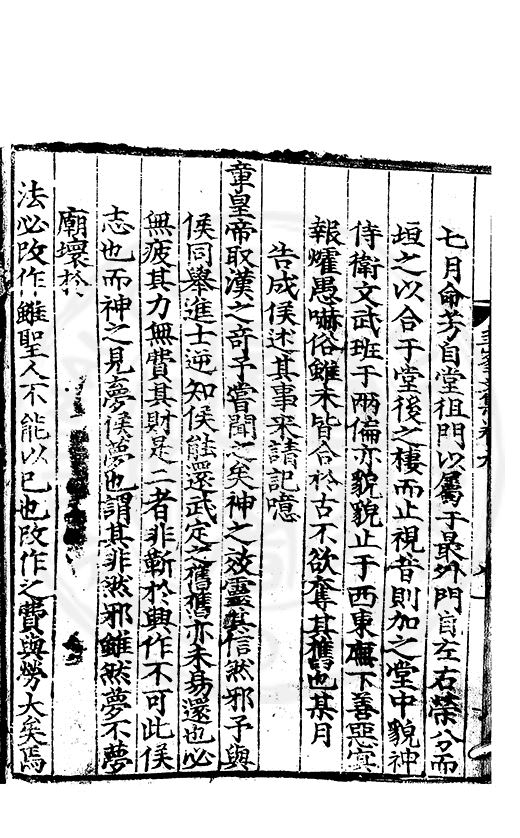 七月命芳自堂祖門以屬于最外門自左右榮分而
垣之以合于堂後之棲而止視昔則加之堂中貌神
侍衛文武班于兩偏亦貌貌止于西東廡下善惡冥
報燿愚嚇俗雖未皆合於古不欲奪其舊也某月
告成侯述其事來請記噫
章皇帝取漢之奇予嘗聞之矣神之效靈其信然邪予與
侯同舉進士逆知侯能還武定之舊舊亦未易還也必
無疲其力無費其財是二者非靳於興作不可此侯
志也而神之見夢侯夢也謂其非然邪雖然夢不夢
廟壞於
法必改作雖聖人不能以已也改作之費與勞大矣焉